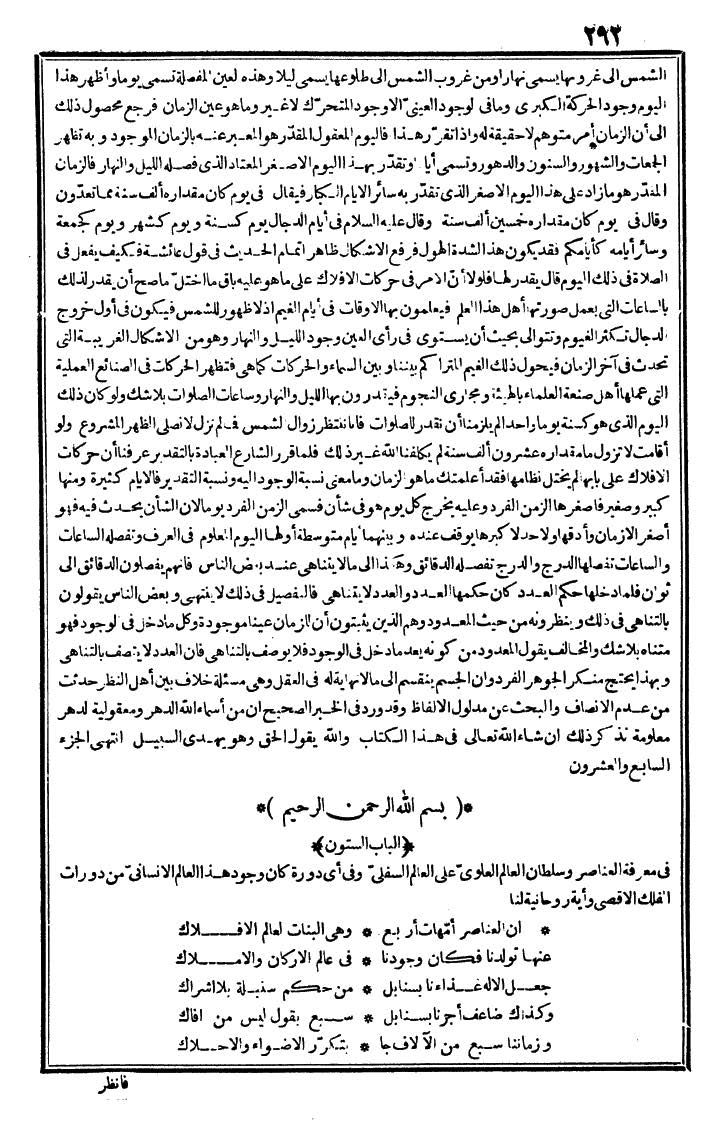 ٢٩٢
الشمس الى غروبها يسمى نهارا ومن غروب الشمس الى طلوعها يسمى ليلا وهذه العين المفصلة تسمى يوما وأظهر هذا
اليوم وجود الحركة الكبرى وما فى الوجود العينىّ الا وجود المتحرّك لا غير وما هو عين الزمان فرجع محصول ذلك
الى أن الزمان أمر متوهم لا حقيقة له واذا تقرّر هذا فاليوم المعقول المقدّر هو المعبر عنه بالزمان الموجود وبه تظهر
الجمعات والشهور والسنون والدهور وتسمى أياما وتقدّر بهذا اليوم الاصغر المعتاد الذى فصله الليل والنهار فالزمان
المقدّر هو ما زاد على هذا اليوم الاصغر الذى تقدّر به سائر الايام الكبار فيقال فى يوم كان مقداره ألف سنة مما تعدّون
وقال فى يوم كان مقداره خمسين ألف سنة وقال عليه السلام فى أيام الدجال يوم كسنة ويوم كشهر ويوم كجمعة
وسائر أيامه كأيامكم فقد يكون هذا لشدة الهول فرفع الاشكال ظاهرا تمام الحديث فى قول عائشة فكيف يفعل فى
الصلاة فى ذلك اليوم قال يقدر لها فلولا أنّ الامر فى حركات الافلاك على ما هو عليه باق ما اختلّ ما صح أن يقدر لذلك
بالساعات التى يعمل صورتها أهل هذا العلم فيعلمون بها الاوقات فى أيام الغيم اذ لا ظهور للشمس فيكون فى أول خروج
الدجال تكثر الغيوم وتتوالى بحيث أن يستوى فى رأى العين وجود الليل والنهار وهو من الاشكال الغريبة التى
تحدث فى آخر الزمان فيحول ذلك الغيم المتراكم بيننا وبين السماء والحركات كما هى فتظهر الحركات فى الصنائع العملية
التى عملها أهل صنعة العلماء بالهيئة ومجارى النجوم فيقدرون بها الليل والنهار وساعات الصلوات بلا شك ولو كان ذلك
اليوم الذى هو كسنة يوما واحدا لم يلزمنا أن نقدر للصلوات فانا ننتظر زوال الشمس فما لم نزل لا نصلى الظهر المشروع ولو
أقامت لا تزول ما مقداره عشرون ألف سنة لم يكلفنا الله غير ذلك فلما قرر الشارع العبادة بالتقدير عرفنا أن حركات
الافلاك على بابها لم يختل نظامها فقد أعلمتك ما هو الزمان وما معنى نسبة الوجود اليه ونسبة التقدير فالايام كثيرة ومنها
كبير وصغير فاصغرها الزمن الفرد وعليه يخرج كل يوم هو فى شأن فسمى الزمن الفرد يوما لان الشأن يحدث فيه فهو
أصغر الازمان وأدقها ولا حد لاكبرها يوقف عنده وبينهما أيام متوسطة أولها اليوم المعلوم فى العرف وتفصله الساعات
والساعات تفصلها الدرج والدرج تفصله الدقائق وهكذا الى ما لا يتناهى عند بعض الناس فانهم يفصلون الدقائق الى
ثوان فلما دخلها حكم العدد كان حكمها العدد والعدد لا يتناهى فالتفصيل فى ذلك لا ينتهى وبعض الناس يقولون
بالتناهى فى ذلك وينظرونه من حيث المعدود وهم الذين يثبتون أن للزمان عينا موجودة وكل ما دخل فى الوجود فهو
متناه بلا شك والمخالف يقول المعدود من كونه يعد ما دخل فى الوجود فلا يوصف بالتناهى فان العدد لا يتصف بالتناهى
وبهذا يحتج منكر الجوهر الفرد وان الجسم ينقسم الى ما لا نهاية له فى العقل وهى مسئلة خلاف بين أهل النظر حدثت
من عدم الانصاف والبحث عن مدلول الالفاظ وقد ورد فى الخبر الصحيح ان من أسماء الله الدهر ومعقولية الدهر
معلومة نذكر ذلك ان شاء الله تعالى فى هذا الكتاب والله يقول الحق وهو يهدى السبيل انتهى الجزء
السابع والعشرون
*( بسم الله الرحمن الرحيم )*
﴿الباب الستون﴾
فى معرفة العناصر وسلطان العالم العلوىّ على العالم السفلىّ وفى أى دورة كان وجود هذا العالم الانسانىّ من دورات
الفلك الاقصى وأية روحانية لنا
* ان العناصر أمّهات أربع * وهى البنات لعالم الافلاك
عنها تولدنا فكان وجودنا * فى عالم الاركان والاملاك
جعل الاله غذاءنا بسنابل * من حكم سنبلة بلا اشراك
وكذاك ضاعف أجرنا بسنابل * سبع بقول ليس من افاك
وزماننا سبع من الآلاف جا * بتكرّر الاضواء والاحلاك
فانظر